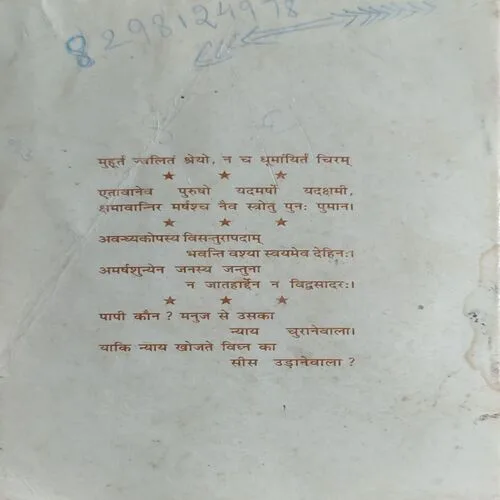 8298124978
मुहूर्त ज्वलितं श्रेयो, न च धूमायितं चिरम्
★ ★ ★
एतावानेव पुरुषो यदमर्षो यदक्षमी,
क्षमावान्निर मर्षश्च नैव स्त्रोतु पुनः पुमान।
★ ★ ★
अवन्ध्यकोपस्य विसन्तुरापदाम्
भवन्ति वश्या स्वयमेव देहिनः।
अमर्षशुन्येन जनस्य जन्तुना
न जातहार्द्देन न विद्वसादरः।
★ ★ ★
पापी कौन ? मनुज से उसका
न्याय चुरानेवाला।
याकि न्याय खोजते विघ्न का
सीस उड़ानेवाला ?